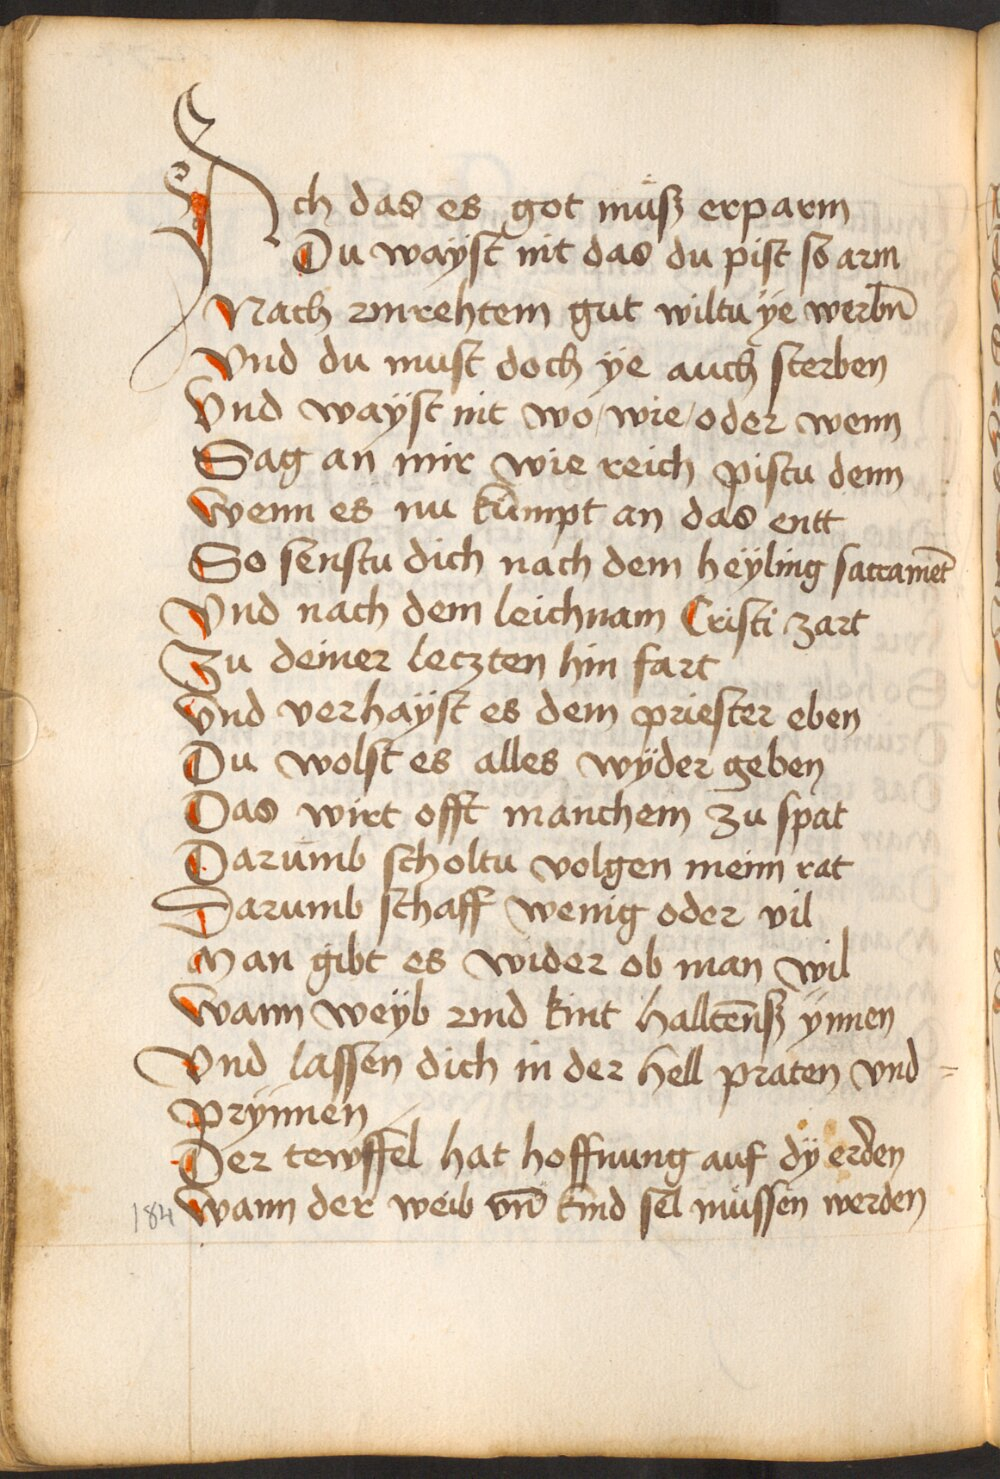 Ach das es got muͦß erparm
Du wayst nit das du pist so arm
Nach vnrehtem gut wiltu ÿe werbn̄
Vnd du must doch ÿe auch sterben
Vnd waÿst nit wo/wie/oder wenn
Sag an mir wie reich pistu denn
Wenn es nu kumpt an das entt
So senstu dich nach dem heÿling sacramēt
Vnd nach dem leichnam Cristi zart
Zu deiner leczten hin fart
Vnd verhaÿst es dem priester eben
Du wolst es alles wÿder geben
Das wirt offt manchem zu spat
Darumb scholtu volgen meim rat
Darumb schaff wenig oder vil
Man gibt es wider ob man wil
Wann weÿb vnd kint halltēnß ÿnnen
Vnd lassen dich in der hell praten vnd =
prÿnnen
Der tewffel hat hoffnung auf dÿ erden
184 Wann der weib vn̄ kind sel müssen werden